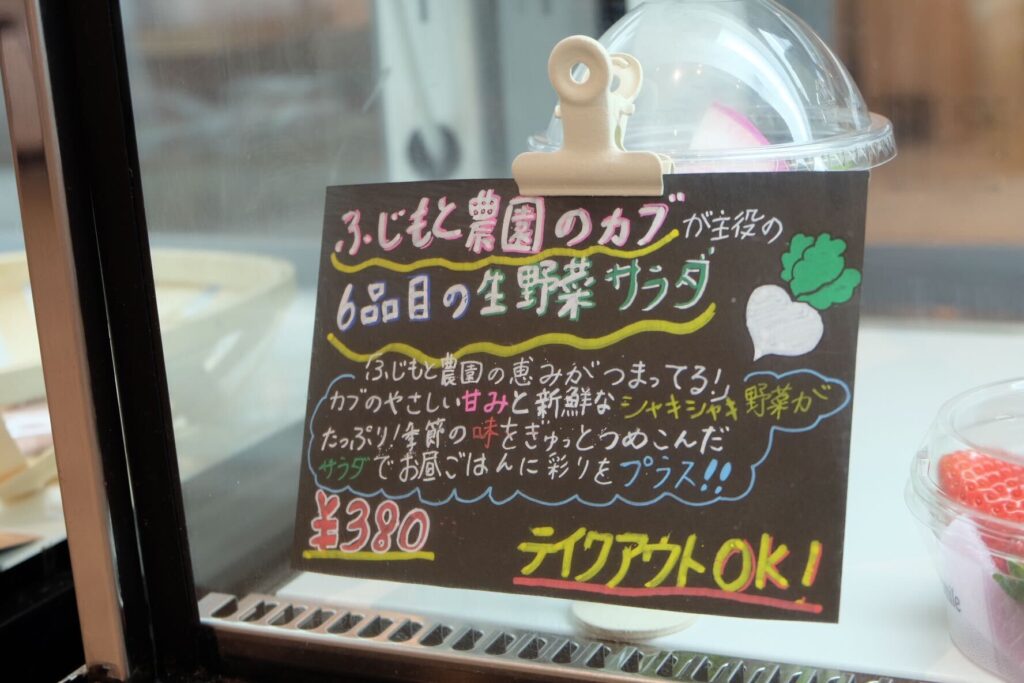 ふじもと農園のカブが主役の
6品目の生野菜サラダ
ふじもと農園の恵みがつまってる!
カブのやさしい甘みと新鮮なシャキシャキ野菜が
たっぷり!季節の味をぎゅっとつめこんだ
サラダでお昼ごはんに彩りをプラス!!
¥380
テイクアウトOK!